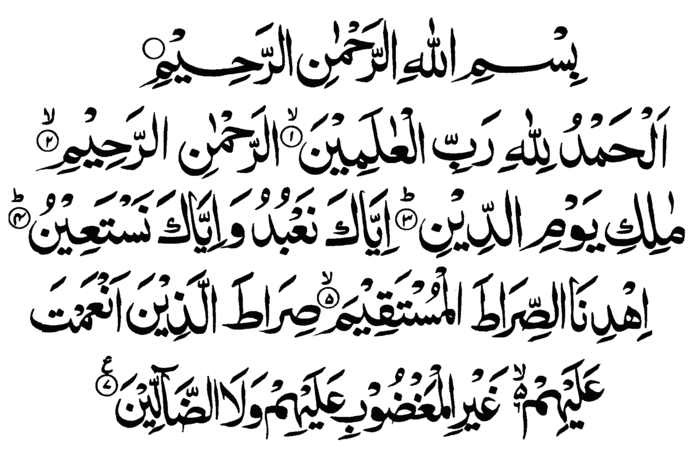 بِسْمِ اللهِ الرَّحْمٰنِ الرَّحِيْمِ ○
اَلْحَمْدُ لِلّٰهِ رَبِّ الْعٰلَمِيْنَ ۙ﴿۱﴾ الرَّحْمٰنِ الرَّحِيْمِ ۙ﴿۲﴾
مٰلِكِ يَوْمِ الدِّيْنِ ؕ﴿۳﴾ اِيَّاكَ نَعْبُدُ وَاِيَّاكَ نَسْتَعِيْنُ ؕ﴿۴﴾
اِهْدِنَا الصِّرَاطَ الْمُسْتَقِيْمَ ۙ﴿۵﴾ صِرَاطَ الَّذِيْنَ اَنْعَمْتَ
عَلَيْهِمْ ۙ غَيْرِ الْمَغْضُوْبِ عَلَيْهِمْ وَلَا الضَّآلِّيْنَ ﴿۷﴾ ع